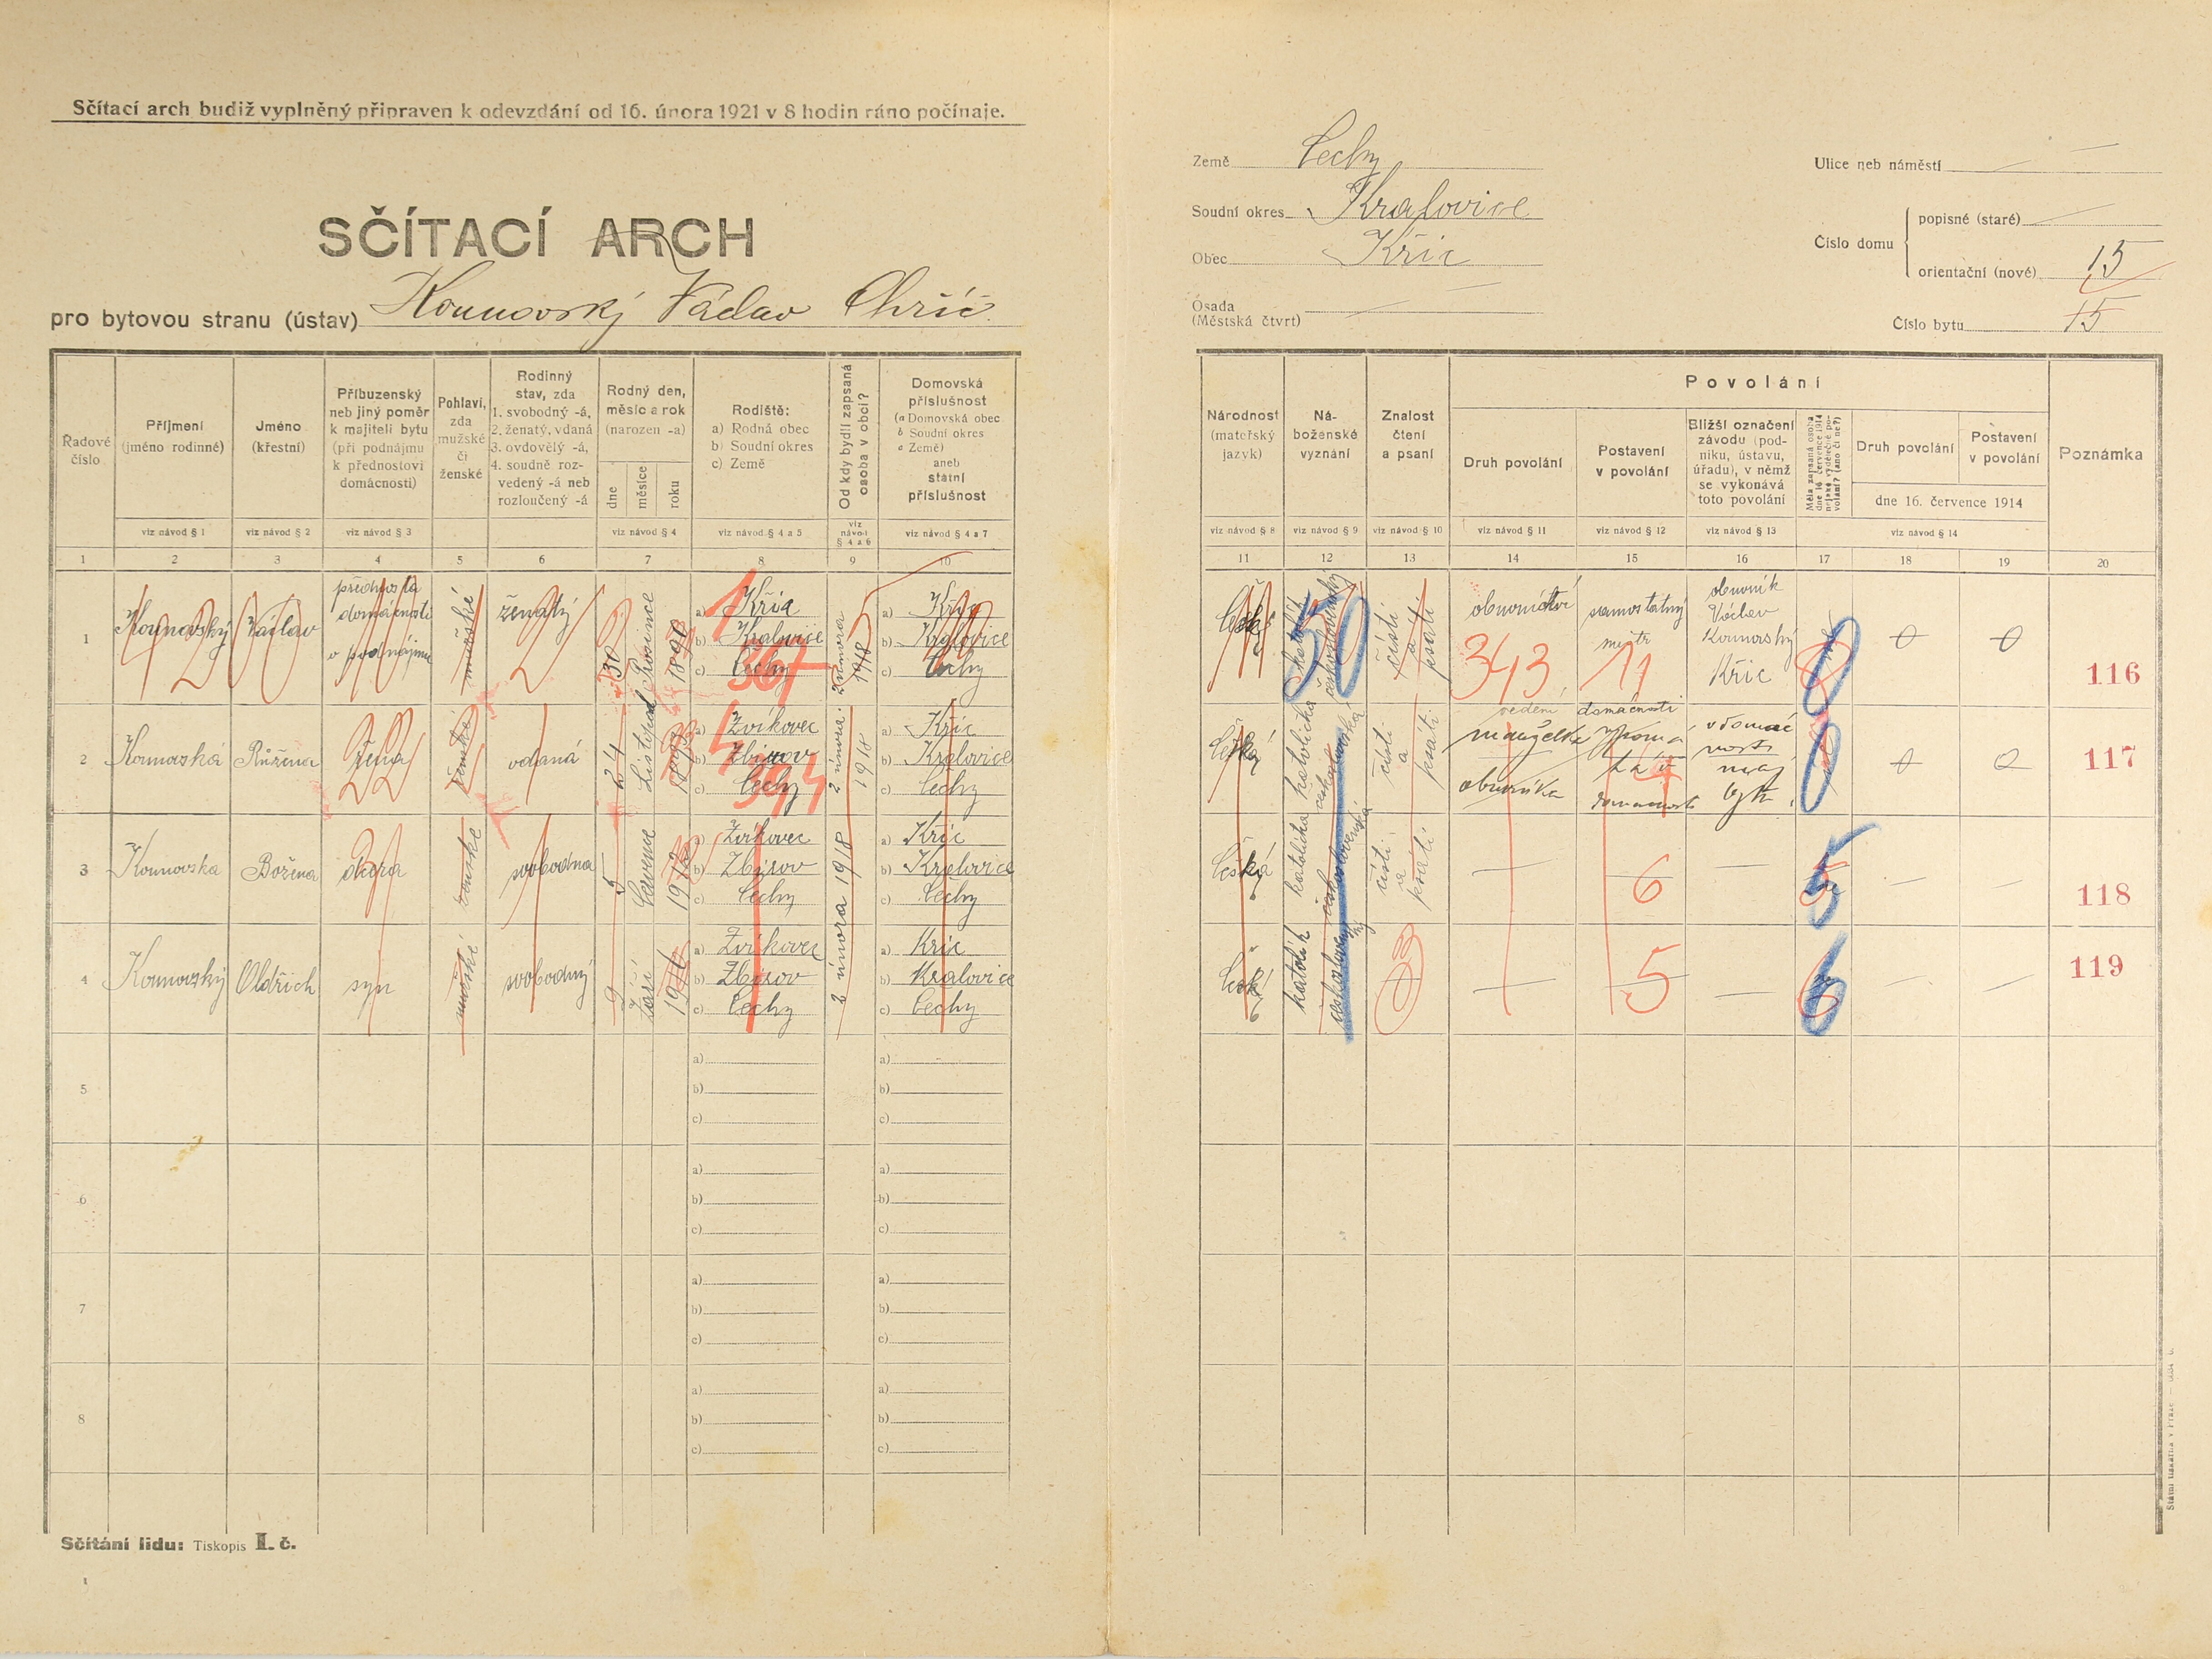 Sčítací arch budiž vyplněný připraven k odevzdání od 16. února 1921 v 8 hodin ráno počínaje.
SČÍTACÍ ARCH
pro bytovou stranu (ústav) Kounovský Václav Chříč
Země Čechy
Soudní okres Kralovice
Obec Kříc
Osada
(Městská čtvrt)
Ulice neb náměstí
Číslo domu
popisné (staré)
orientační (nové) 15
Číslo bytu 15
Řadové číslo
Příjmení (jméno rodinné)
Jméno (křestní)
Příbuzenský neb jiný poměr k majiteli bytu (při podnájmu k přednostovi domácnosti)
Pohlaví, zda mužské či ženské
Rodinný stav, zda 1. svobodný -á, 2. ženatý, vdaná 3. ovdovělý -á, 4. soudně rozvedený -á neb rozloučený -á
Rodný den, měsíc a rok (narozen -a)
dne měsíce roku
Rodiště: a) Rodná obec b) Soudní okres c) Země
Od kdy bydlí zapsaná osoba v obci?
Domovská příslušnost (a Domovská obec b Soudní okres c Země) aneb státní příslušnost
viz návod § 1
viz návod § 2
viz návod § 3
viz návod § 4
viz návod § 4 a 5
viz návod § 4 a 6
viz návod § 4 a 7
1 2 3 4 5 6 7 8 9 10
Národnost (mateřský jazyk)
Náboženské vyznání
Znalost čtení a psaní
Povolání
Druh povolání
Postavení v povolání
Bližší označení závodu (podniku, ústavu, úřadu), v němž se vykonává toto povolání
Měla zapsaná osoba dne 16. července 1914 nějaké výdělečné povolání? (ano či ne?)
Druh povolání
Postavení v povolání
dne 16. července 1914
Poznámka
viz návod § 8
viz návod § 9
viz návod § 10
viz návod § 11
viz návod § 12
viz návod § 13
viz návod § 14
11 12 13 14 15 16 17 18 19 20
1 Kounovský Václav přednosta domácnosti v podnájmu mužské ženatý 30 Prosince 1890
a) Kříc
b) Kralovice
c) Čechy
2 února 1918
a) Kříc
b) Kralovice
c) Čechy
1 367
katolík českoslovanský 50 čísti a psáti obuvnictví samostatný mistr obuvník Václav Kounovský Kříc 0 0
343 11 116
2 Kounovská Růžena žena ženská vdaná 24 Listopad
a) Zvíkovec
b) Zbirov
c) Čechy
2 února 1918
a) Kříc
b) Kralovice
c) Čechy
4 394
Česká katolická čísti a psáti vedení domácnosti manželka obuvníka v domácnosti 0 0
117
3 Kounovska Božena dcera ženské svobodna 5 Června
a) Zvíkovec
b) Zbirov
c) Čechy
2 února 1918
a) Kříc
b) Kralovice
c) Čechy
Česká čísti a psáti
6 5 118
4 Kounovský Oldřich syn mužské svobodný 9 Září 1916
a) Zvíkovec
b) Zbirov
c) Čechy
a) Kříc
b) Kralovice
c) Čechy
katolík
5 6 119
5
a)
b)
c)
a)
b)
c)
6
a)
b)
c)
a)
b)
c)
7
a)
b)
c)
a)
b)
c)
8
a)
b)
c)
a)
b)
c)
Sčítání lidu: Tiskopis I. č.